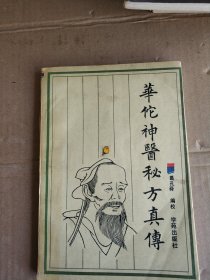 華佗神醫秘方真傳
编校
学苑出版社